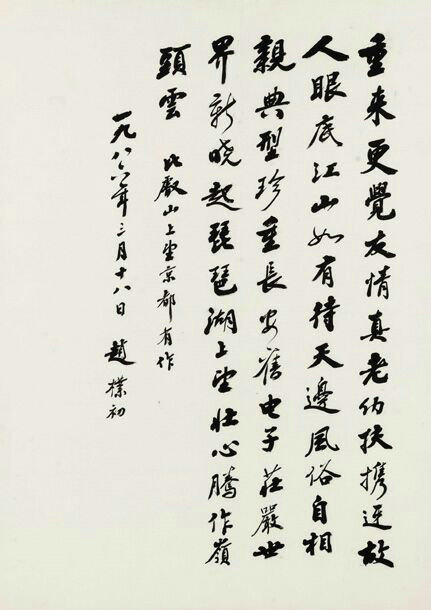 重来更覺友情真老幼扶携迓故
人眼底江山如有待天邊風俗自相
親典型珍重長安舊电子莊嚴世
界新晓起琵琶湖上望壮心騰作嶺
頭雲 比叡山上望京都有作
一九八六年三月十八日 趙樸初